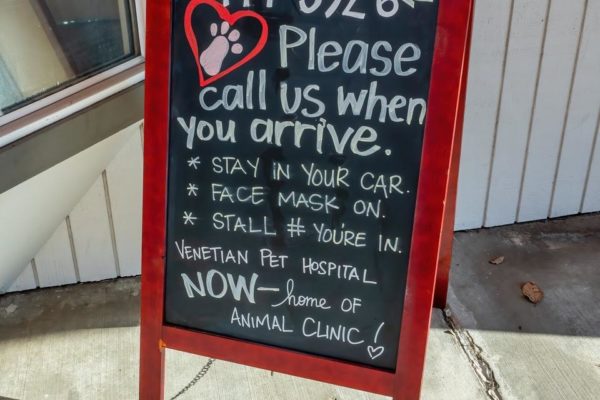 Please
call us when
you arrive.
* STAY IN YOUR CAR.
* FACE MASK ON.
* STALL # YOU'RE IN.
VENETIAN PET HOSPITAL
NOW— home OF
ANIMAL CLINIC!